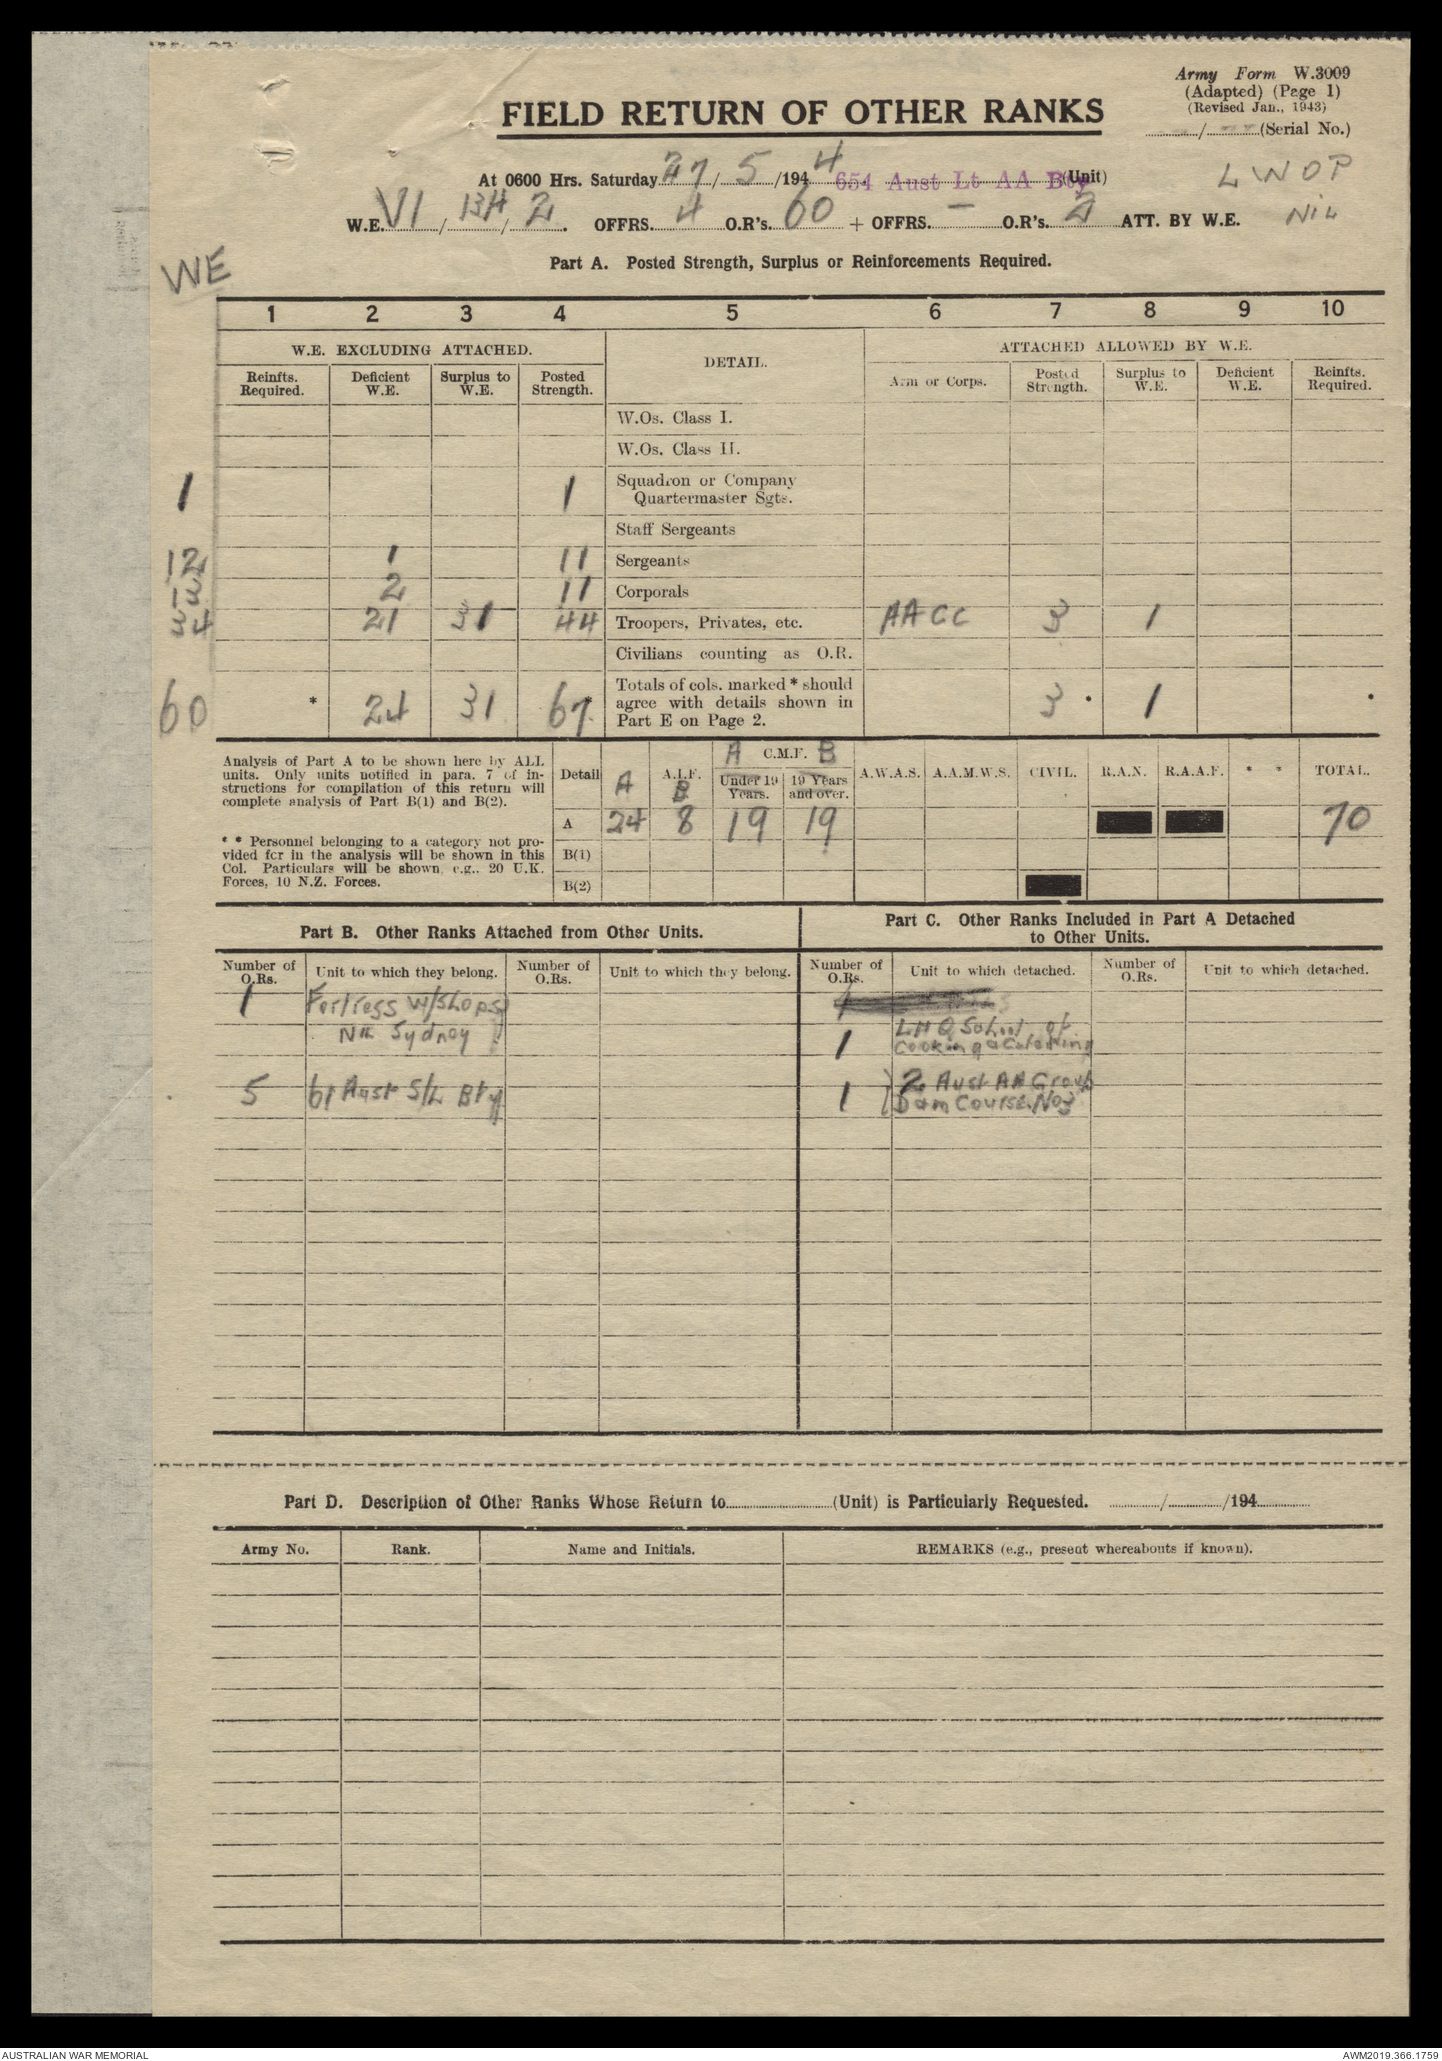 Army Form W.3009
(Adapted) (Page 1)
(Revised Jan., 1943)
FIELD RETURN OF OTHER RANKS
/ (Serial No.)
At 0600 Hrs. Saturday 27 / 5 /194 4 654 Aust Lt AA Bty (Unit)
L W O P
W.E. VI / 13H / 2 . OFFRS. 4 O.R's. 60 + OFFRS. — O.R's. 2 ATT. BY W.E. Nil
Part A. Posted Strength, Surplus or Reinforcements Required.
WE
1 2 3 4 5 6 7 8 9 10
W.E. EXCLUDING ATTACHED. DETAIL. ATTACHED ALLOWED BY W.E.
Reinfts. Required. Deficient W.E. Surplus to W.E. Posted Strength. Arm or Corps. Posted Strength. Surplus to W.E. Deficient W.E. Reinfts. Required.
W.Os. Class I.
W.Os. Class II.
1 1 Squadron or Company
Quartermaster Sgts.
Staff Sergeants
12 1 11 Sergeants
13 2 11 Corporals
34 21 31 44 Troopers, Privates, etc. AACC 3 1
Civilians counting as O.R.
60 * 24 31 67 * Totals of cols. marked * should
agree with details shown in
Part E on Page 2. 3 * 1 *
Analysis of Part A to be shown here by ALL
units. Only units notified in para. 7 of in-
structions for compilation of this return will
complete analysis of Part B(1) and B(2).
* * Personnel belonging to a category not pro-
vided for in the analysis will be shown in this
Col. Particulars will be shown, e.g., 20 U.K.
Forces, 10 N.Z. Forces.
A C.M.F. B
Detail A A.I.F. B Under 19 Years. 19 Years and over. A.W.A.S. A.A.M.W.S. CIVIL. R.A.N. R.A.A.F. * * TOTAL.
A 24 8 19 19 70
B(1)
B(2)
Part B. Other Ranks Attached from Other Units. Part C. Other Ranks Included in Part A Detached
to Other Units.
Number of O.Rs. Unit to which they belong. Number of O.Rs. Unit to which they belong. Number of O.Rs. Unit to which detached. Number of O.Rs. Unit to which detached.
1 Fortress W/Shops
Nth Sydney
1 LHQ School of
Cooking & Catering
5 61 Aust S/L Bty
1 2 Aust AA Group
D & M Course. No 3
Part D. Description of Other Ranks Whose Return to (Unit) is Particularly Requested. / /194
Army No. Rank. Name and Initials. REMARKS (e.g., present whereabouts if known).
AUSTRALIAN WAR MEMORIAL AWM2019.366.1759